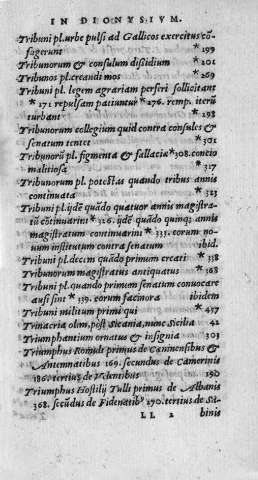 IN DIONYSIUM.
Tribuni pl. urbe pulsi ad Gallicos exercitus cõ-
fugerunt * 199
Tribunorum & consulum disidium * 201
Tribunos pl. creandi mos * 269
Tribuni pl. legem agrariam perferri sollicitant
* 271 repulsam patiuntur * 276. remp. iterũ
turbant * 293
Tribunorum collegium quid contra consules &
senatum tentet * 301
Tribunorũ pl. figmenta & fallacia * 308. concio
malitiosa * 317
Tribunorum pl. potestas quando tribus annis
continuata * 323
Tribuni pl. ijdẽ quãdo quatuor annis magistra-
tũ cõtinuarint * 326. ijdẽ quãdo quinq; annis
magistratum continuarint * 335. eorum no-
uum institutum contra senatum ibid.
Tribuni pl. decem quãdo primum creati * 338
Tribunorum magistratus antiquatus * 368
Tribuni pl. quando primum senatum conuocare
ausi sint * 339. eorum facinora ibidem
Tribuni militum primi qui * 437
Trinacria olim, post Sicania, nunc Sicilia 42
Triumphantium ornatus & insignia 303
Triumphus Romuli primus de Caninensibus &
Antemnatibus 169. secundus de Camerinis
186. tertius de Veientibus 190
Triumphus Hostilij Tulli primus de Albanis
268. secũdus de Fidenatib9 270. tertius de Sa-
LL 2 binis